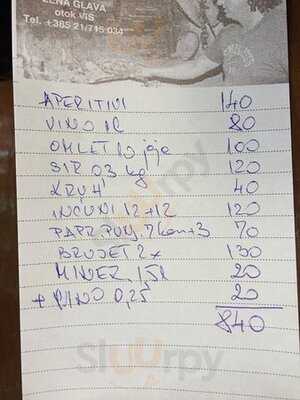 ŽENA GLAVA
otok VIS
Tel. +385 21/715 034
APERITIVI 140
VINO 1L 80
OMLET 10 jaja 100
SIR 0,3 kg 120
KRUH 40
INĆUNI 12+12 120
PAPR PUNJ. 7kom+3 70
BRUDET 2x 130
MINER 1,5l 20
+ VINO 0,25 20
840
Sluurpy